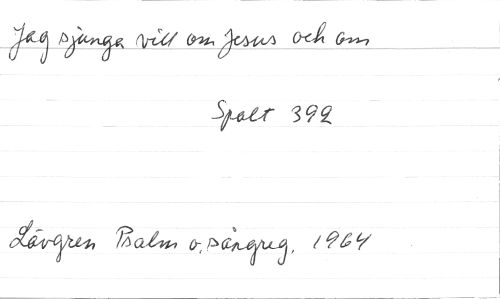 Jag sjunga vill om Jesus och om
Spalt 392
Lövgren Psalm o. sångreg. 1964